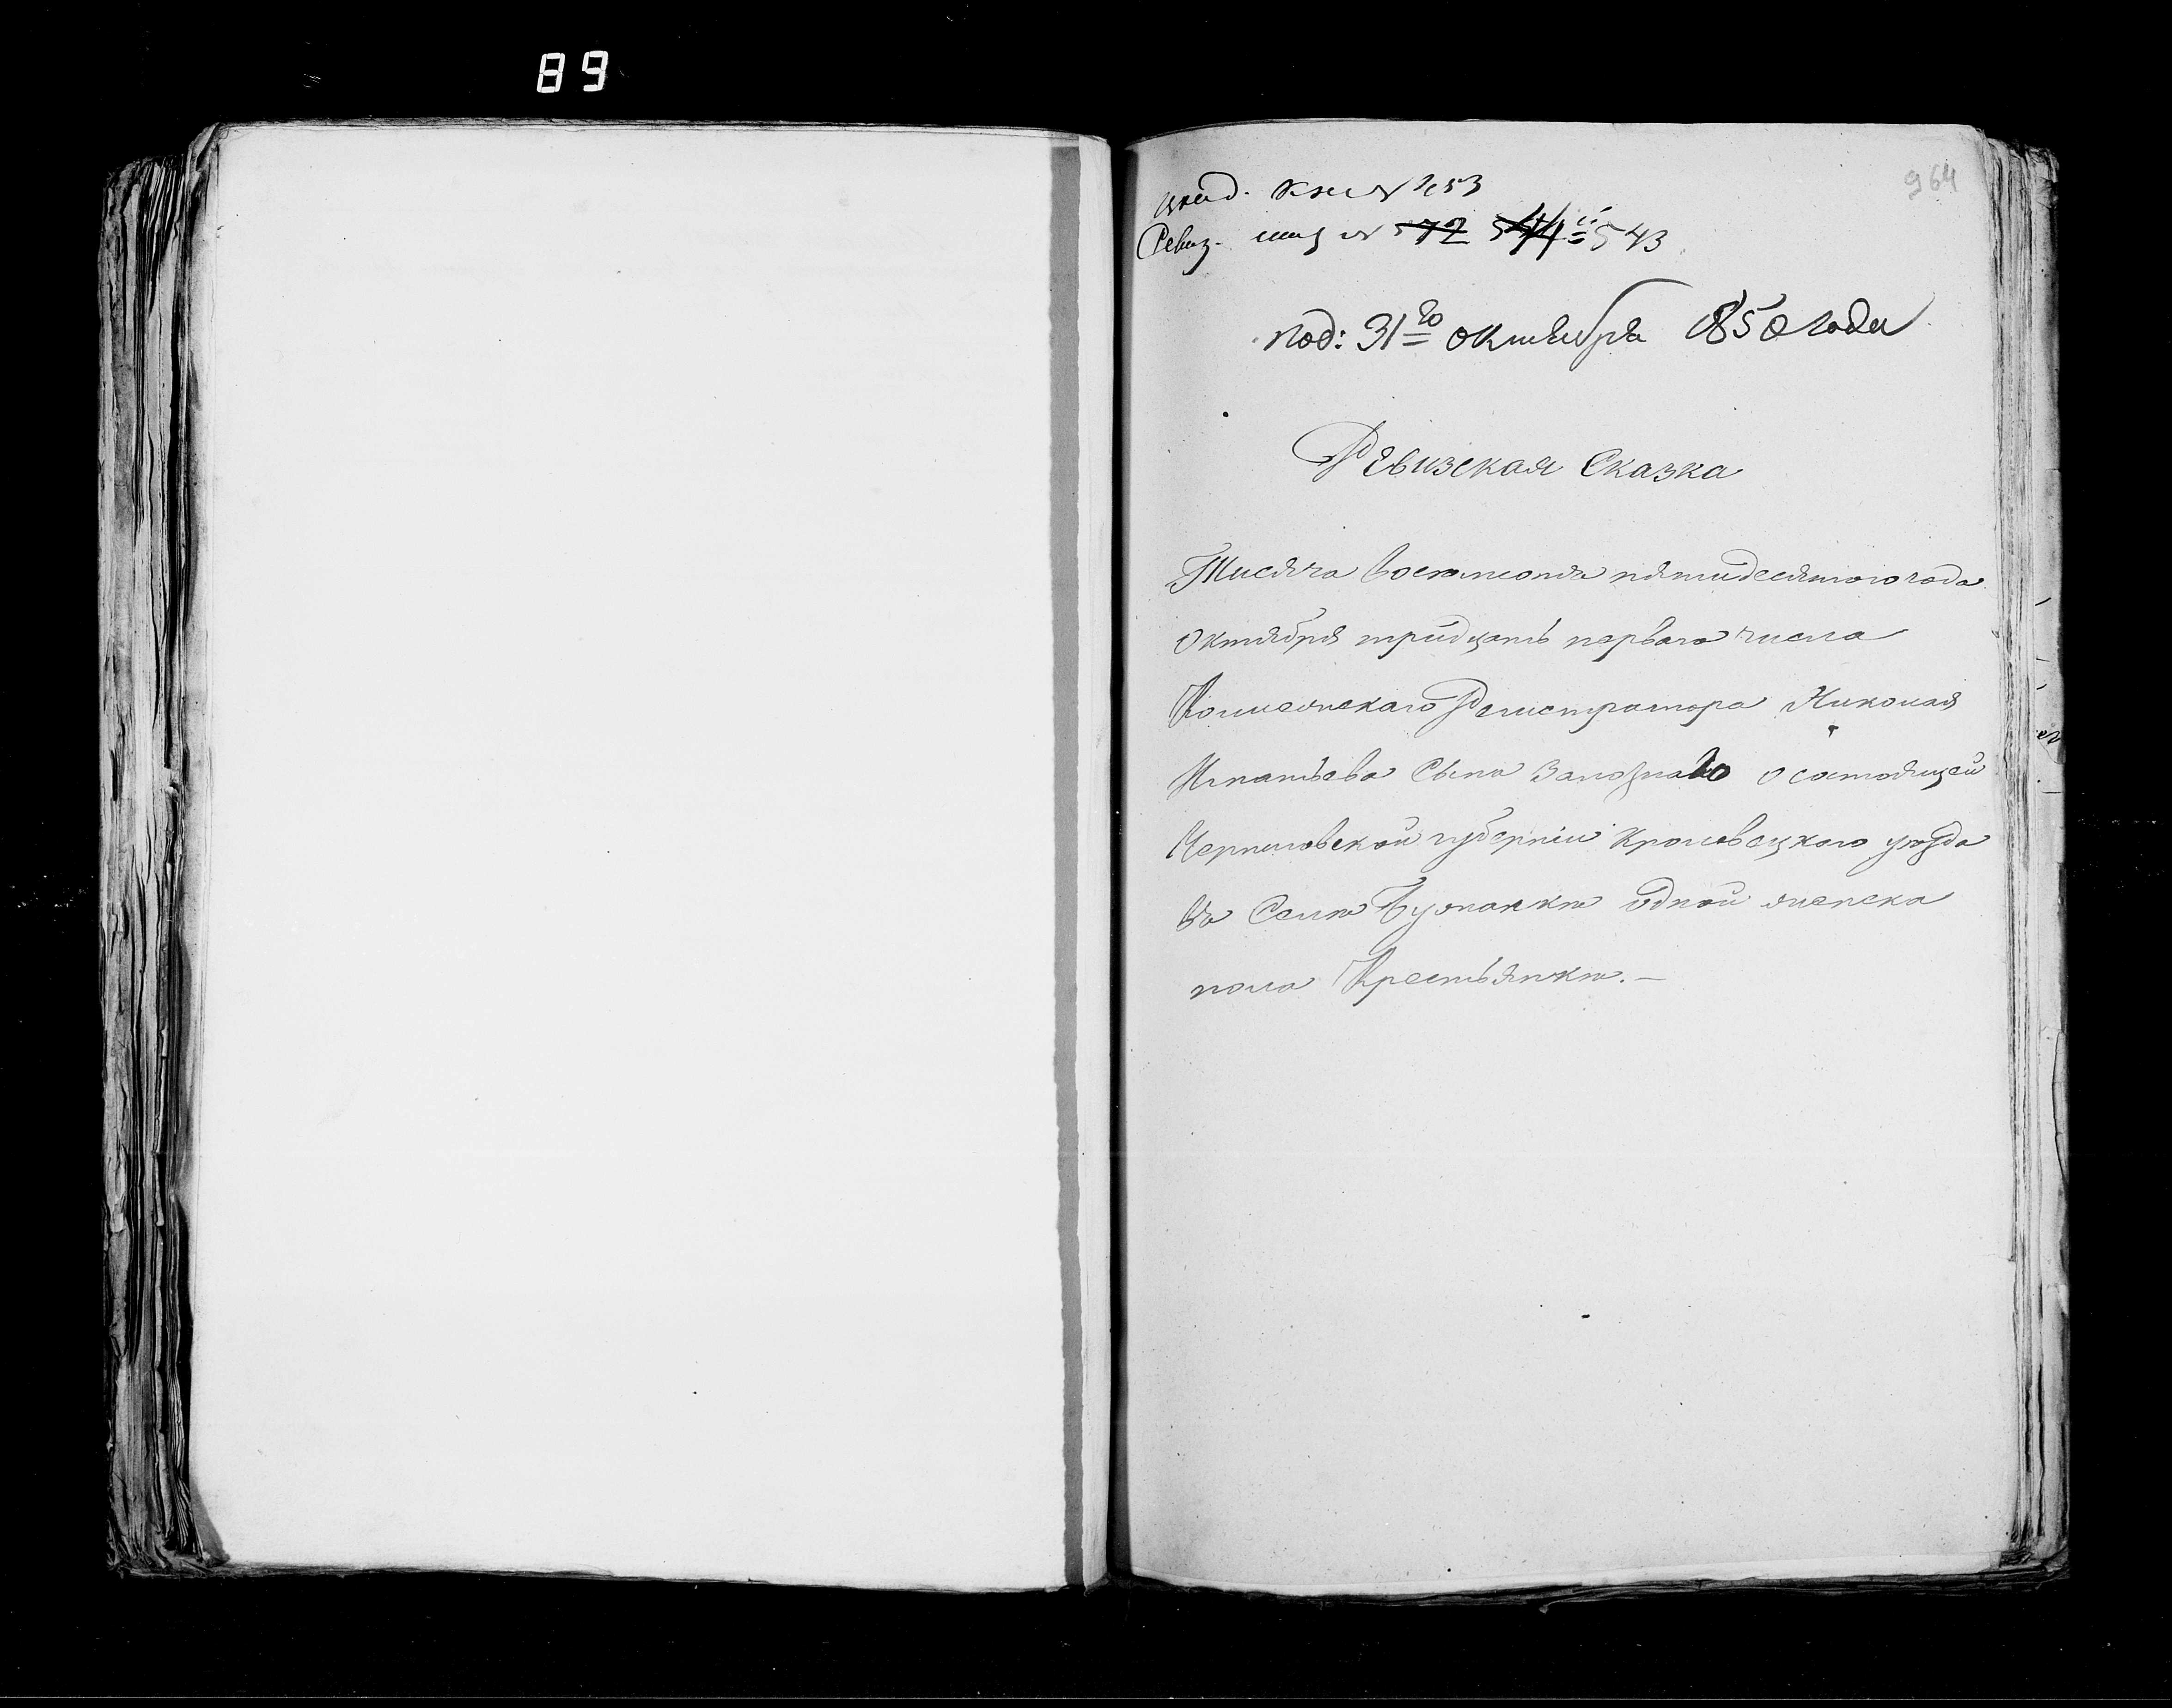 89
964
Ревиз. 543
под: 31го октября 1850 года
Ревизская Сказка
Тисяча восемьсотъ пятидесятого года
Октября тридцать первого числа
Колležского Регистратора Николая
Игнатьева Сына о состоящей
Черниговской губерніи Кролевецкого уезда
въ Селе одной женска
пола Крестьянке. —